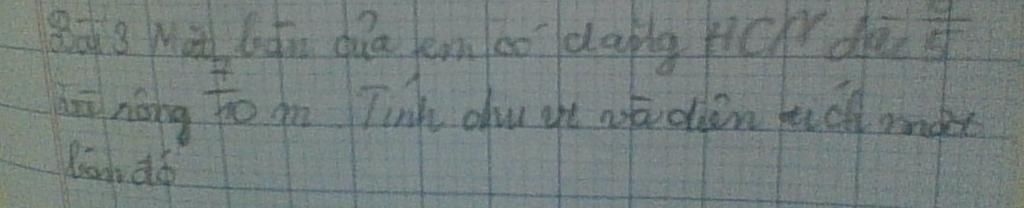 Bài 3 Mặt bàn của em có dạng HCN dài /5
rộng 7/10 m Tính chu vi và diện tích mặt
bàn đó